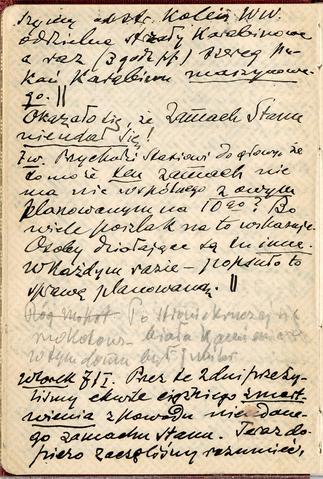 od str. Kolei W.W.
oddzielne strzały Karabinowe
a raz (3 godz pp) szereg pu-
kań Karabinu maszynowe-
go. ||
Okazało się, że zamach Stanu
nie udał się!
Zw. Przychodzi Stasiowi do głowy że
to może ten zamach nie
ma nic wspólnego z owym
planowanym na 10go? Bo
wiele poszlak na to wskazuje.
Osoby działające są tu inne.
W każdym razie – popsuło to
sprawę planowaną. ||
Róg Mokot. Po
W tym domu był
Wtorek 7/I. Przez te 2 dni przeży-
liśmy chwile ciężkiego zmart-
wienia z powodu nieudane-
go zamachu Stanu. Teraz do-
piero zaczęliśmy rozumieć,